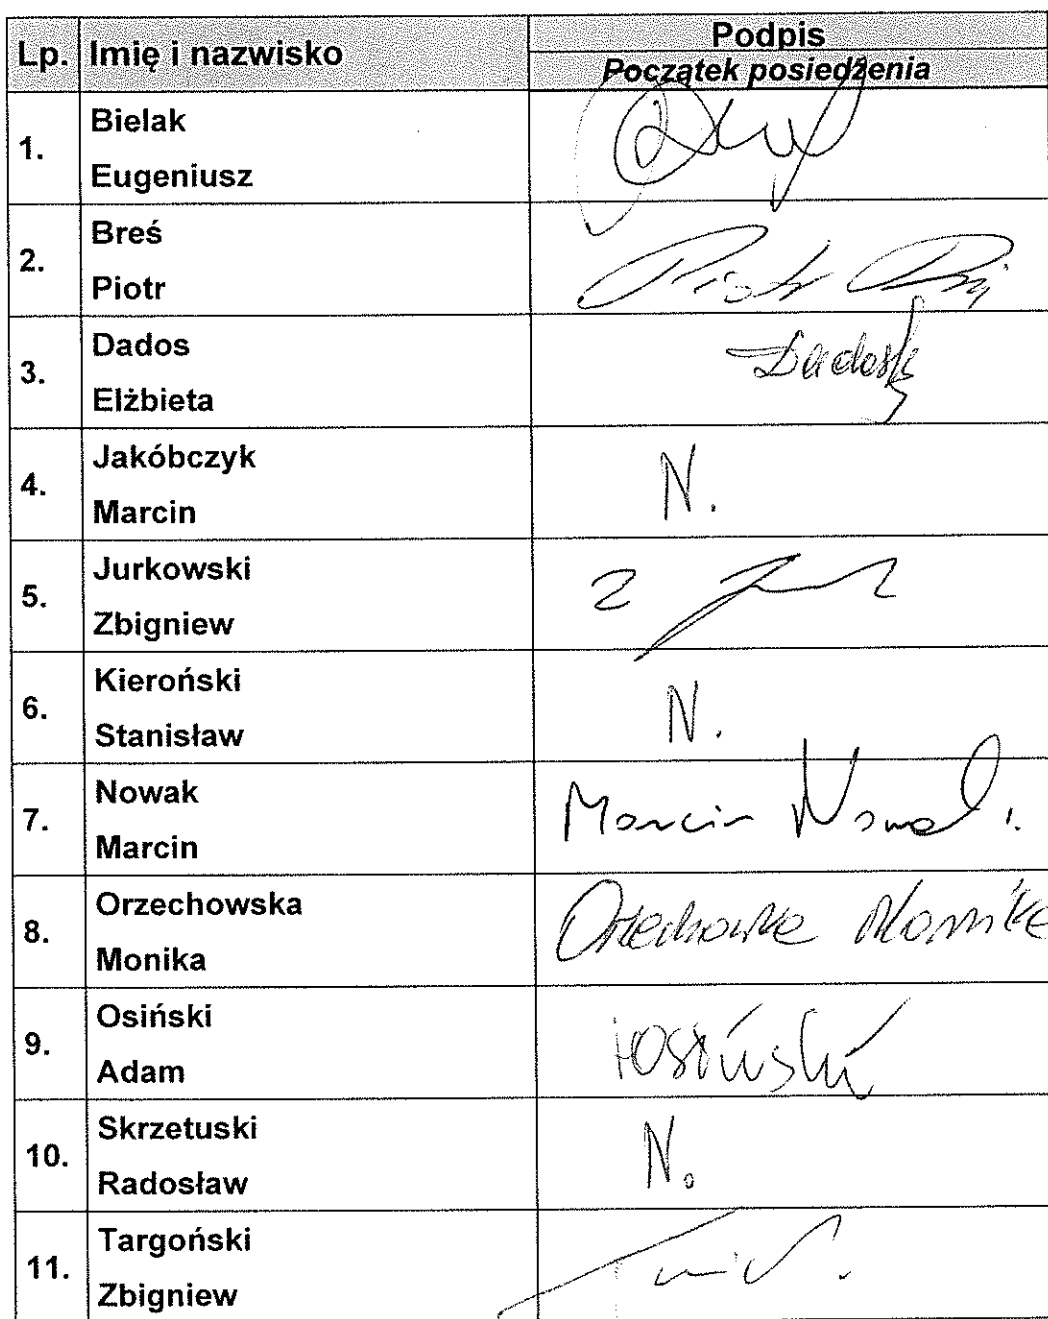 Lp. Imię i nazwisko Podpis
Początek posiedzenia
1. Bielak
Eugeniusz
2. Breś
Piotr
Piotr
3. Dados
Elżbieta
4. Jakóbczyk
Marcin
N.
5. Jurkowski
Zbigniew
Z
6. Kieroński
Stanisław
N.
7. Nowak
Marcin
Marcin Nowak
8. Orzechowska
Monika
Orzechowska Monika
9. Osiński
Adam
Osiński
10. Skrzetuski
Radosław
N.
11. Targoński
Zbigniew